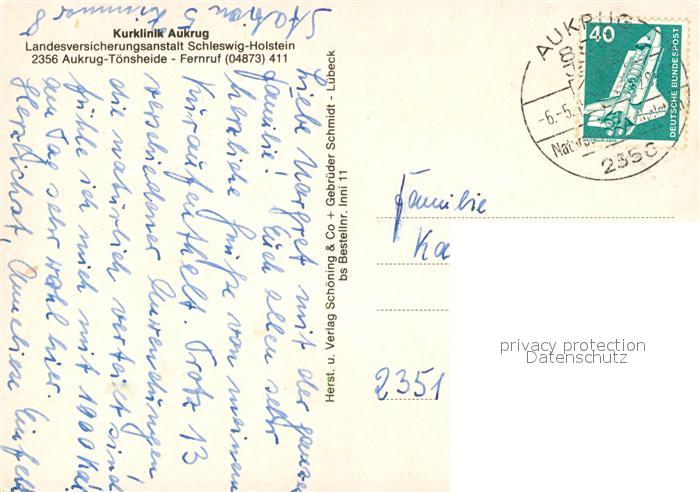 Station 5
Zimmer 8
Kurklinik Aukrug
Landesversicherungsanstalt Schleswig-Holstein
2356 Aukrug-Tönsheide - Fernruf (04873) 411
Liebe Margret mit der ganzen
Familie! Euch allen sehr
herzliche Grüße von meinem
Kuraufenthalt. Trotz 13
verschiedener Anwendungen,
die natürlich verteilt sind,
fühle ich mich mit 1000 Kal.
am Tag sehr wohl hier.
Herzlichst,
Herst. u. Verlag Schöning & Co + Gebrüder Schmidt - Lübeck
bs Bestellnr. Inni 11
AUKRUG
-6.-5.
2356
40
DEUTSCHE BUNDESPOST
Familie
Ka
2351
privacy protection
Datenschutz